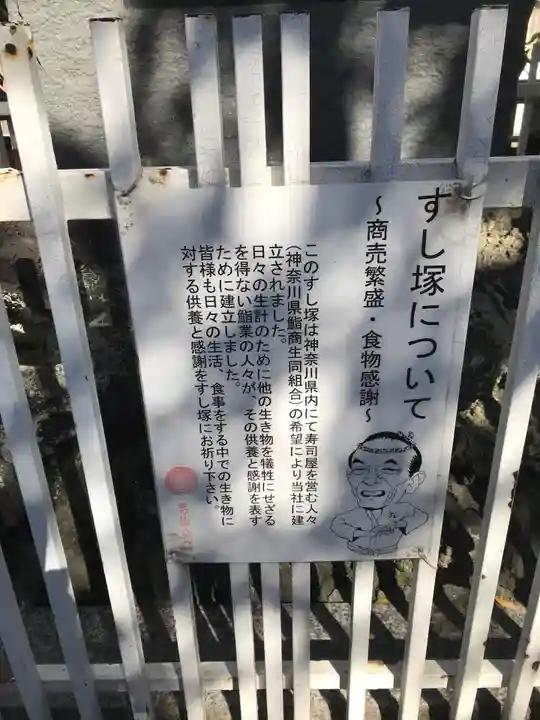 すし塚について
～商売繁盛・食物感謝～
このすし塚は神奈川県内にて寿司屋を営む人々
（神奈川県鮨商生同組合）の希望により当社に建
立されました。
日々の生計のために他の生き物を犠牲にせざる
を得ない鮨業の人々が、その供養と感謝を表す
ために建立しました。
皆様も日々の生活、食事をする中での生き物に
対する供養と感謝をすし塚にお祈り下さい。